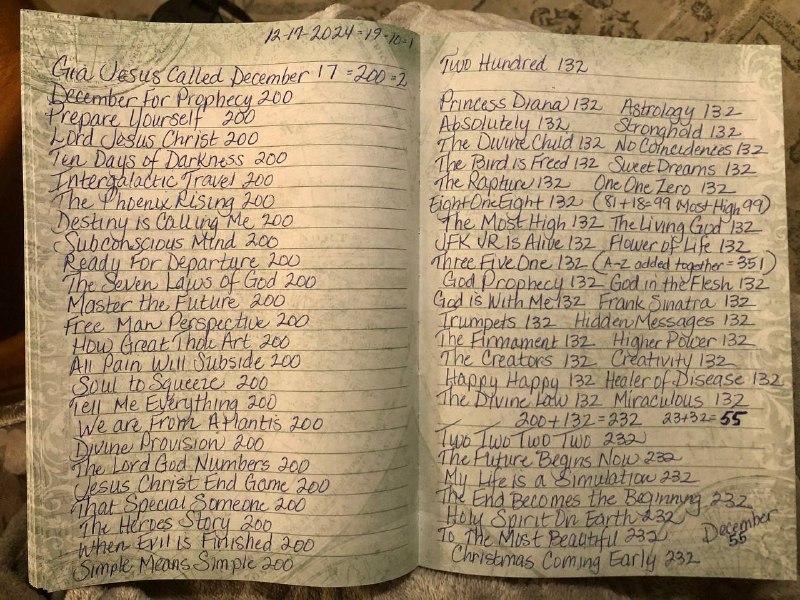 12-17-2024=19=10=1
Gia Jesus Called December 17 =200=2
December For Prophecy 200
Prepare Yourself 200
Lord Jesus Christ 200
Ten Days of Darkness 200
Intergalactic Travel 200
The Phoenix Rising 200
Destiny is Calling Me 200
Subconscious Mind 200
Ready For Departure 200
The Seven Laws of God 200
Master the Future 200
Free Man Perspective 200
How Great Thou Art 200
All Pain Will Subside 200
Soul to Squeeze 200
Tell Me Everything 200
We are From Atlantis 200
Divine Provision 200
The Lord God Numbers 200
Jesus Christ End Game 200
That Special Someone 200
The Heroes Story 200
When Evil is Finished 200
Simple Means Simple 200
Two Hundred 132
Princess Diana 132 Astrology 132
Absolutely 132 Stronghold 132
The Divine Child 132 No Coincidences 132
The Bird is Freed 132 Sweet Dreams 132
The Rapture 132 One One Zero 132
Eight One Eight 132 (81+18=99 Most High 99)
The Most High 132 The Living God 132
JFK JR Is Alive 132 Flower of Life 132
Three Five One 132 (A-Z added together=351)
God Prophecy 132 God in the Flesh 132
God is With Me 132 Frank Sinatra 132
Trumpets 132 Hidden Messages 132
The Firmament 132 Higher Power 132
The Creators 132 Creativity 132
Happy Happy 132 Healer of Disease 132
The Divine Law 132 Miraculous 132
200+132=232 23+32=55
Two Two Two Two 232
The Future Begins Now 232
My Life is a Simulation 232
The End Becomes the Beginning 232
Holy Spirit On Earth 232
To The Most Beautiful 232 December
55
Christmas Coming Early 232